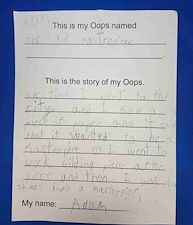 This is my Oops named
the 3d masterpiece
This is the story of my Oops.
one time I went to the
city and I saw a
piece of paper and it said
that it wanted to be a
masterpiec so I went to
work bilding pice after
piece and then I was done
It was finaly a masterpiece
My name: Adam